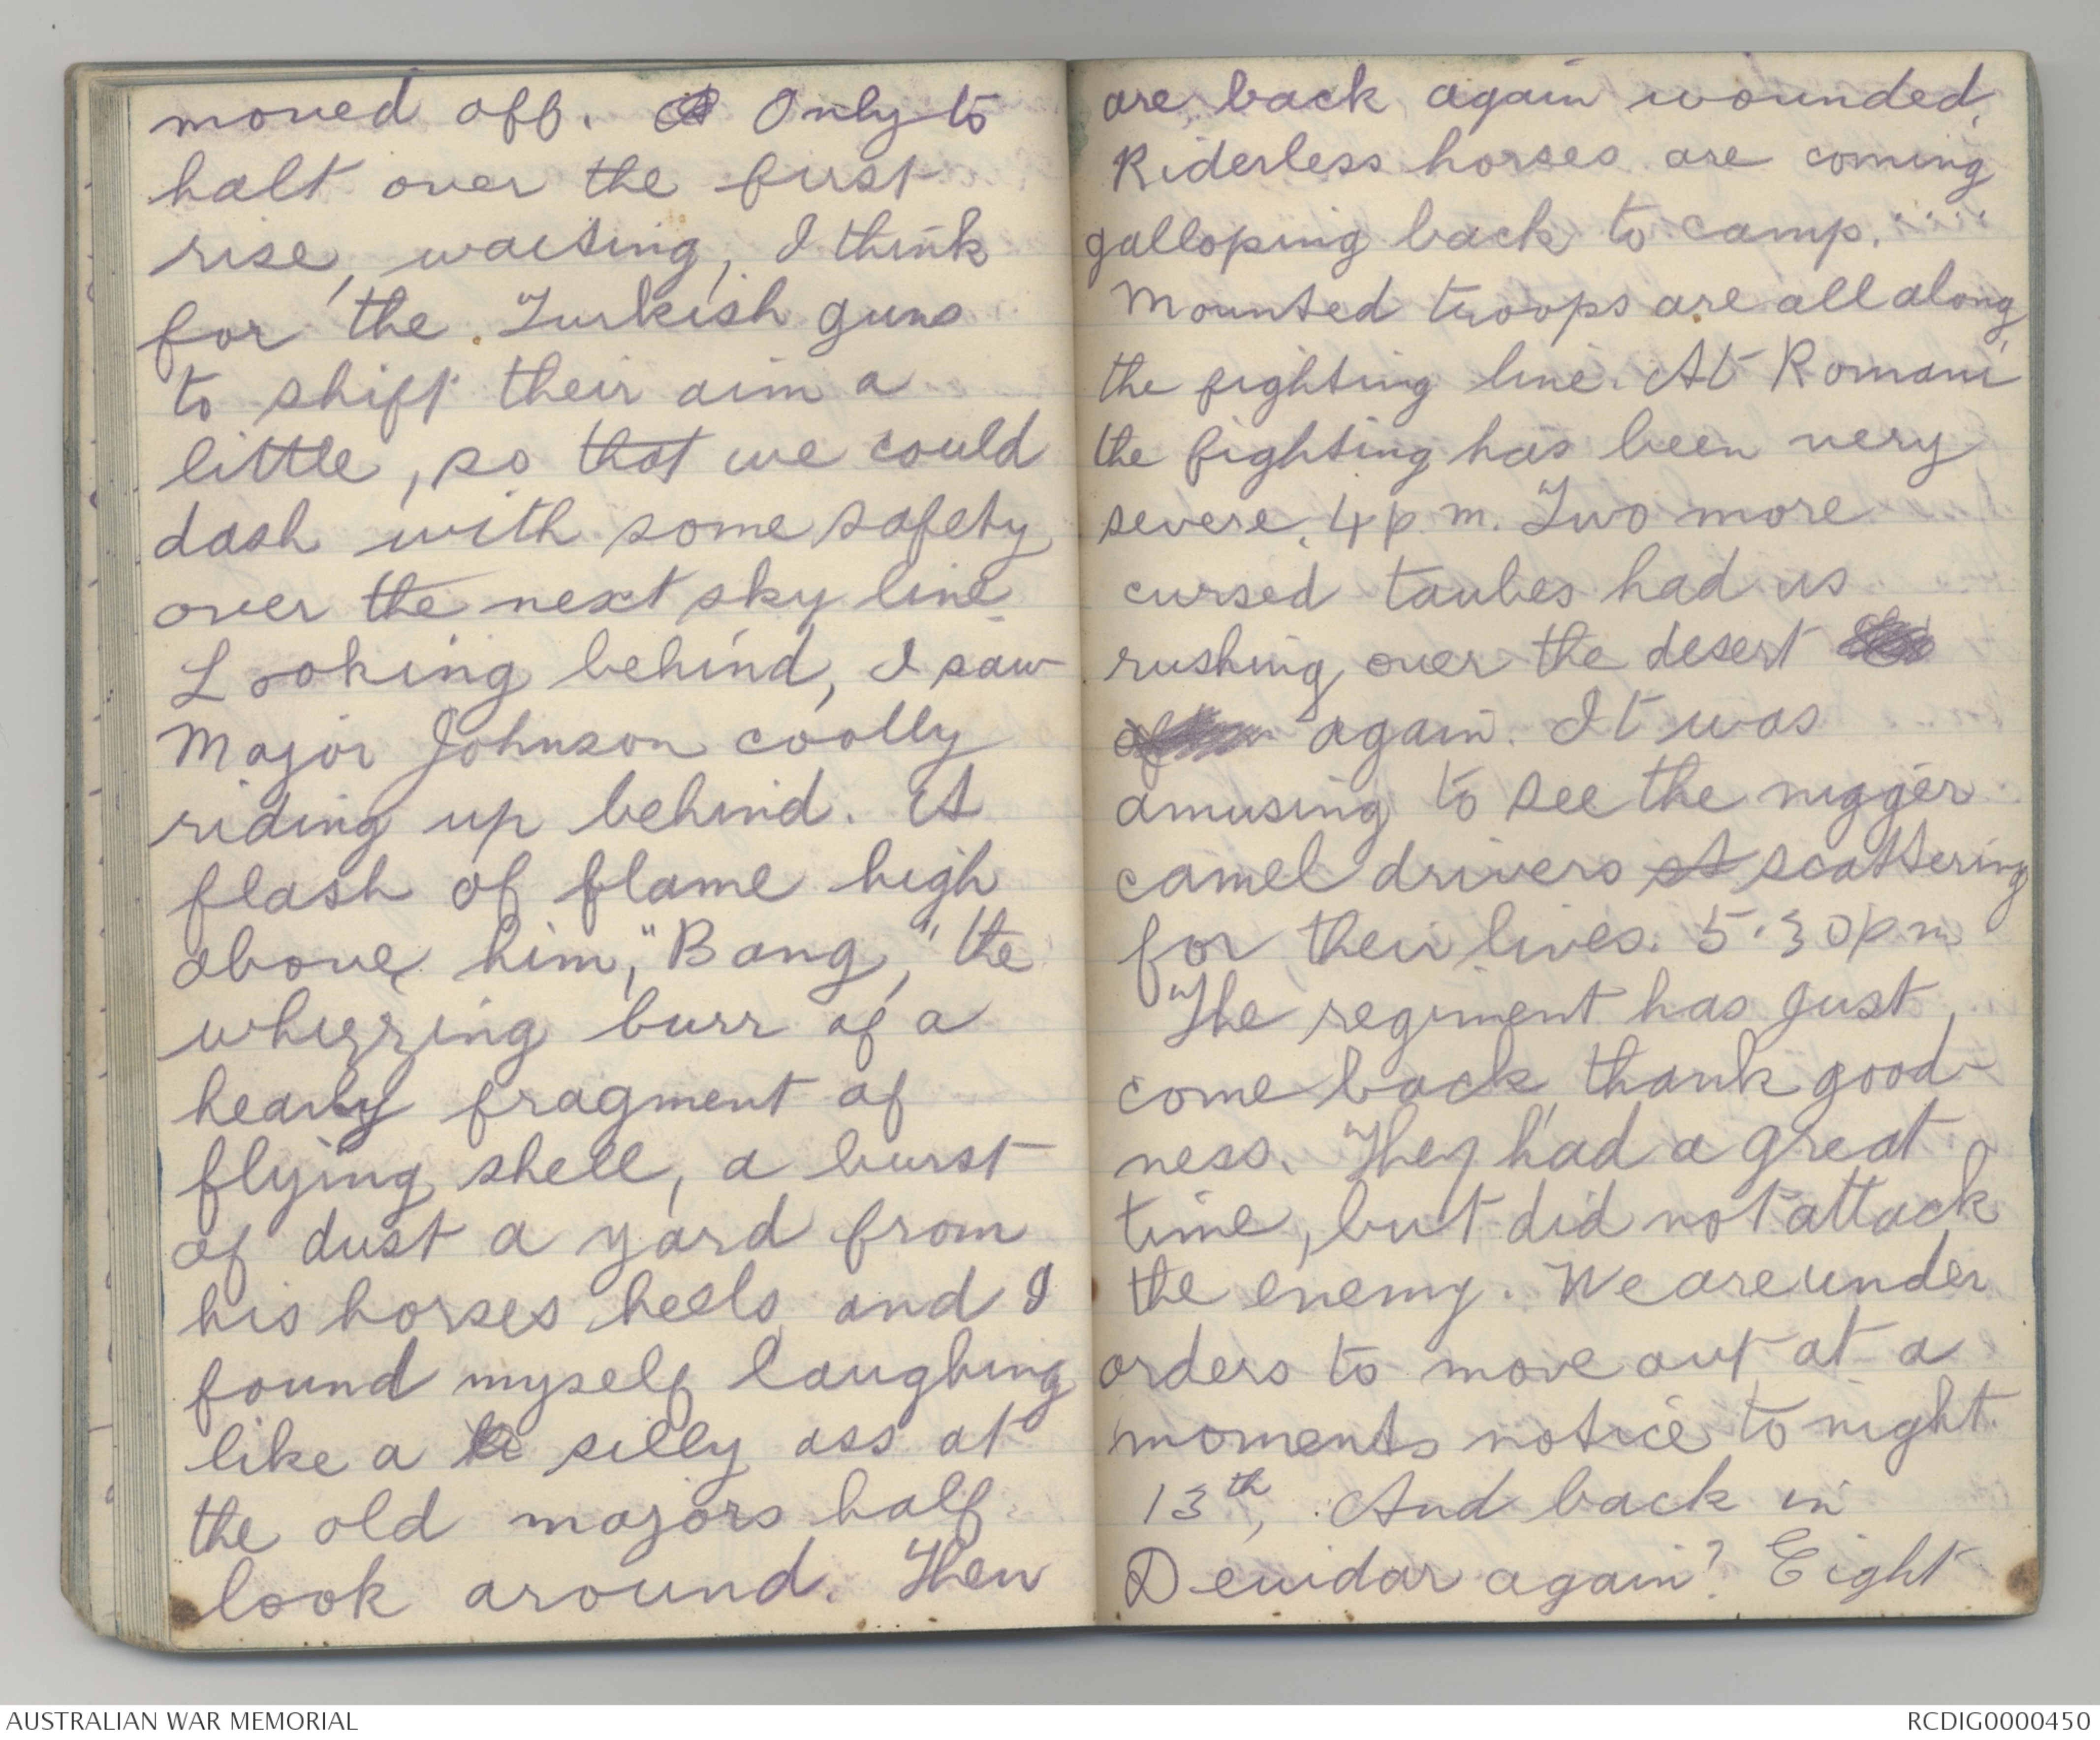 moved off. Only to
halt over the first
rise, waiting, I think
for the Turkish guns
to shift their aim a
little, so that we could
dash with some safety
over the next sky line
Looking behind, I saw
Major Johnson coolly
riding up behind. A
flash of flame high
above him, "Bang," the
whizzing burr of a
heavy fragment of
flying shell, a burst
of dust a yard from
his horses heels and I
found myself laughing
like a silly ass at
the old majors half
look around. Then
are back again wounded,
Riderless horses are coming
galloping back to camp.
Mounted troops are all along
the fighting line. At Romani
the fighting has been very
severe. 4 p m. Two more
cursed taubes had us
rushing over the desert
again. It was
amusing to see the nigger
camel drivers st scattering
for their lives. 5.30 pm
The regiment has just
come back, thank good-
ness. They had a great
time, but did not attack
the enemy. We are under
orders to move out at a
moments notice to night.
13th, And back in
Deuidar again? Eight
AUSTRALIAN WAR MEMORIAL
RCDIG0000450